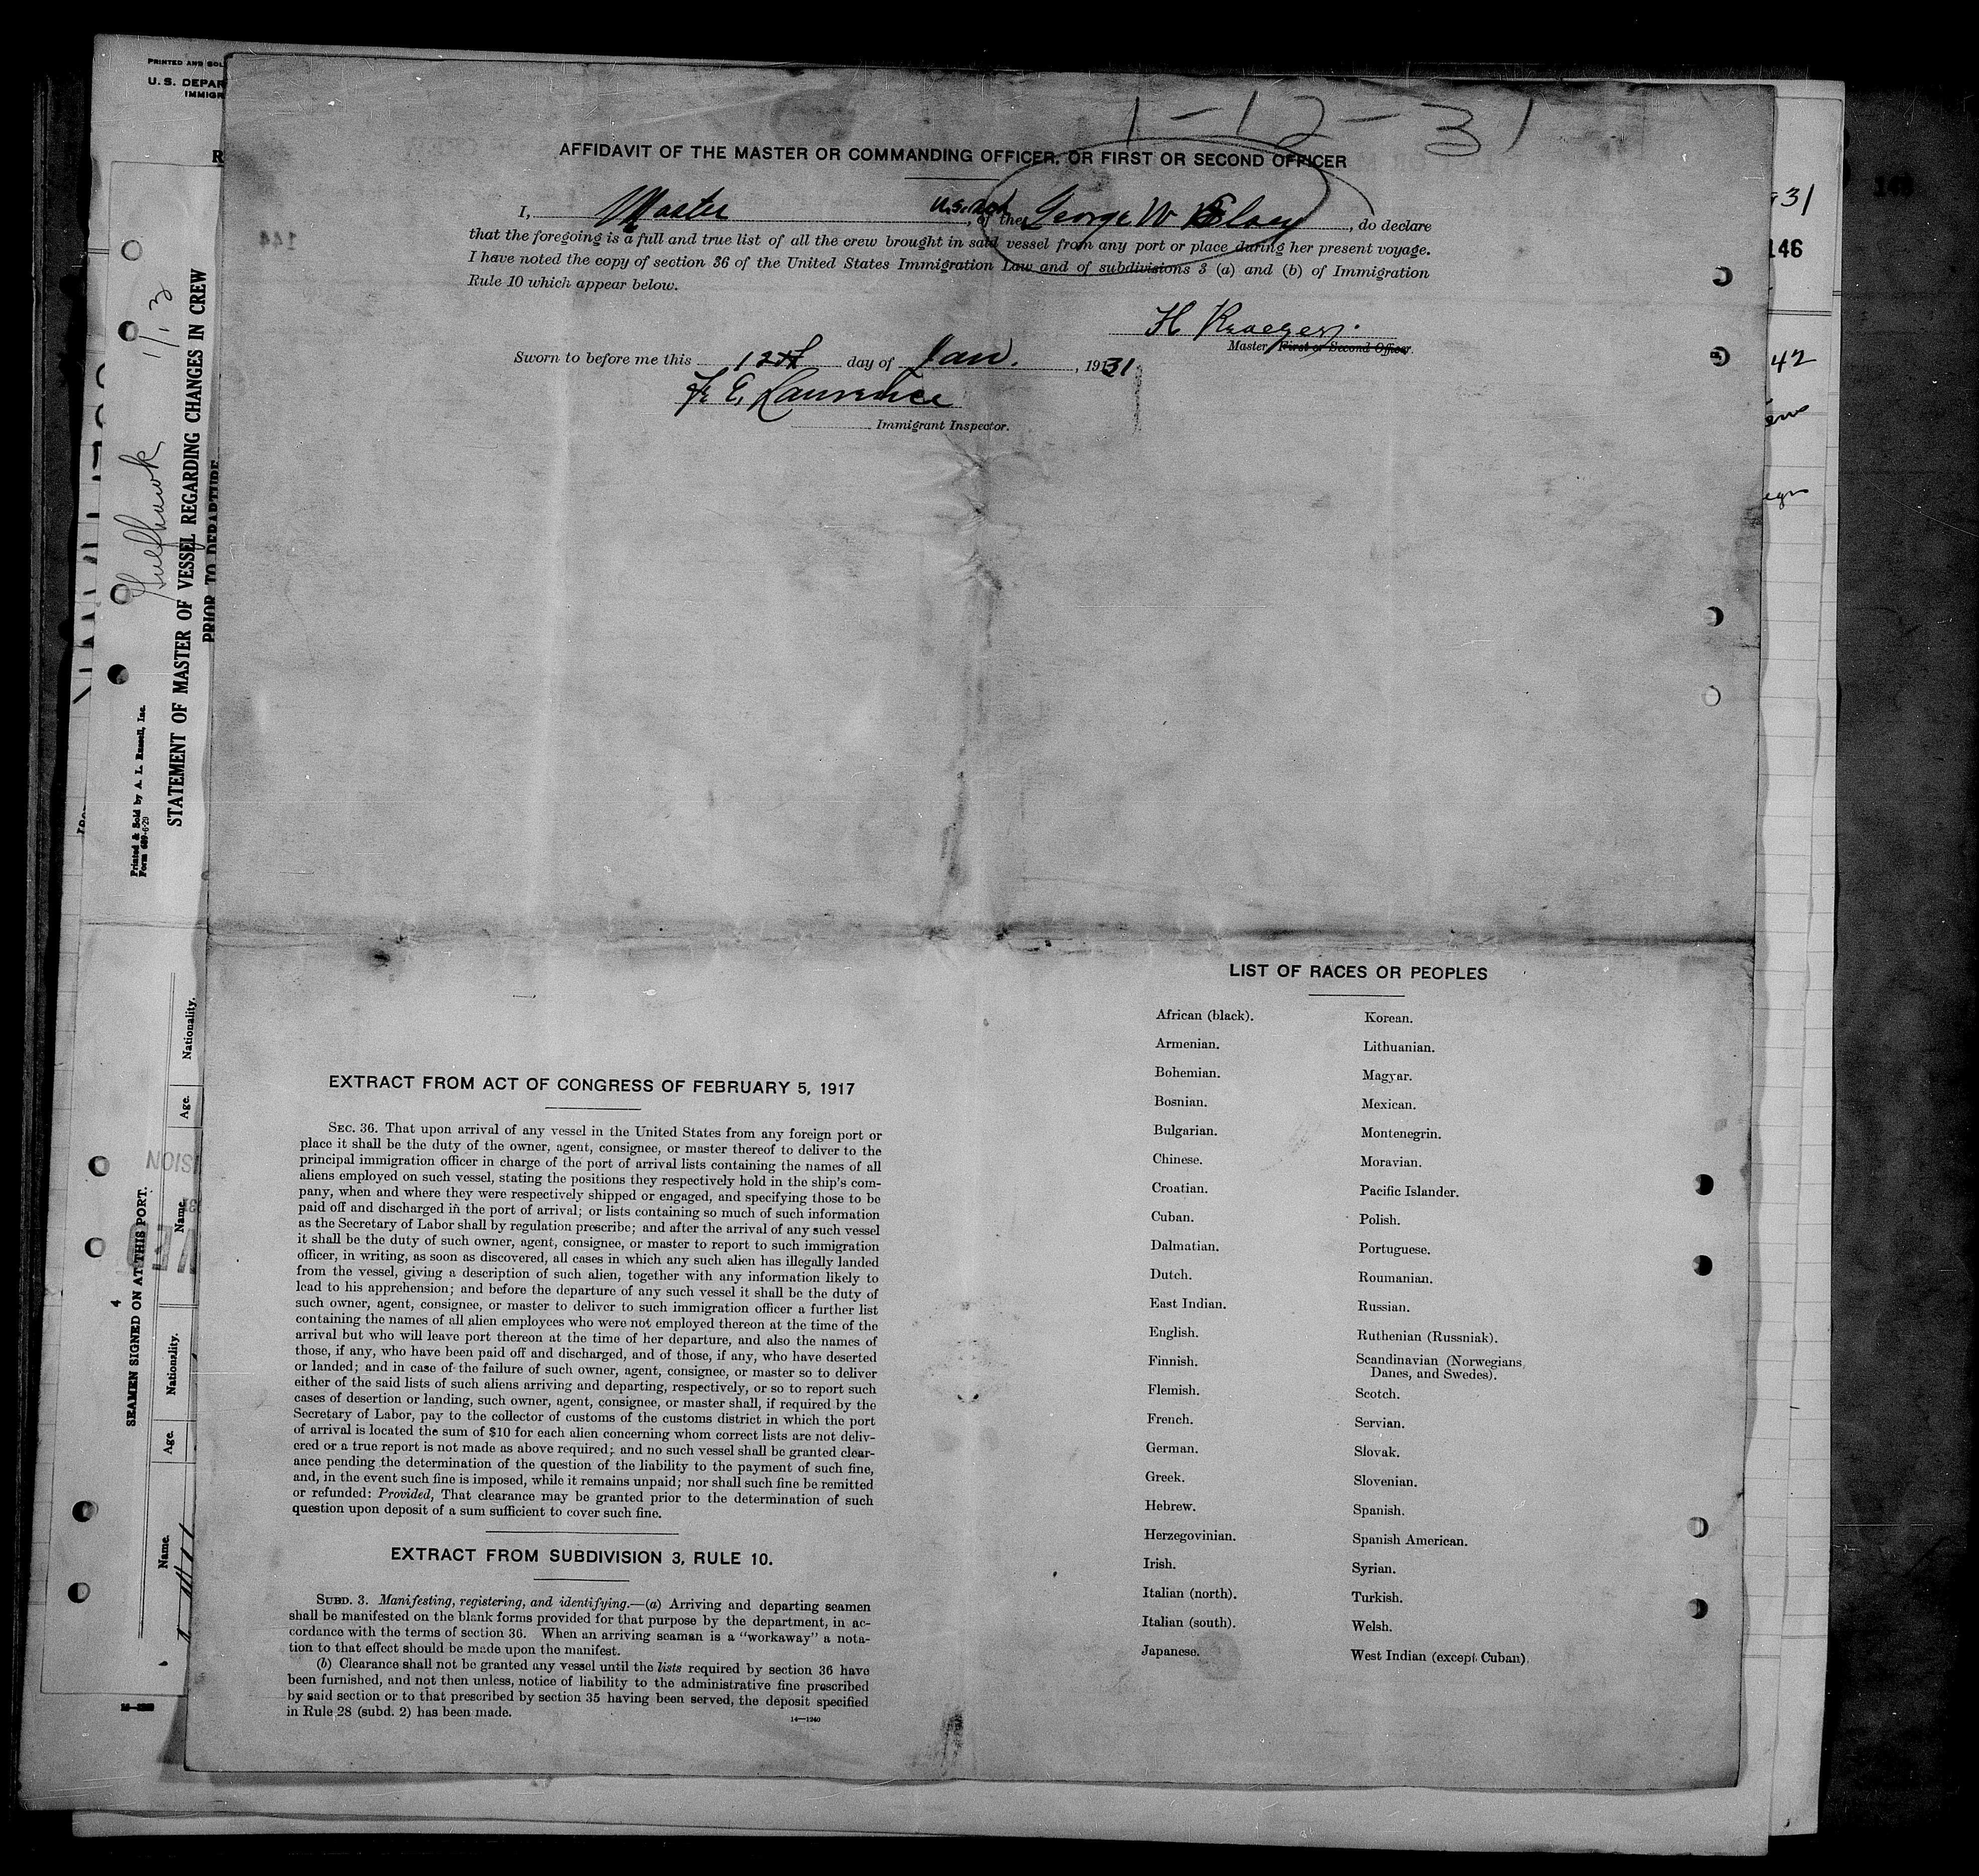 PRINTED AND SOL
U. S. DEPAR
IMMIGR
R
1-12-31
AFFIDAVIT OF THE MASTER OR COMMANDING OFFICER, OR FIRST OR SECOND OFFICER
I, Master, of the George W, do declare
that the foregoing is a full and true list of all the crew brought in said vessel from any port or place during her present voyage.
I have noted the copy of section 36 of the United States Immigration Law and of subdivisions 3 (a) and (b) of Immigration
Rule 10 which appear below.
H
Master, First or Second Officer.
Sworn to before me this 12th day of Jan., 1931
E. Lawrence
Immigrant Inspector.
LIST OF RACES OR PEOPLES
African (black).
Armenian.
Bohemian.
Bosnian.
Bulgarian.
Chinese.
Croatian.
Cuban.
Dalmatian.
Dutch.
East Indian.
English.
Finnish.
Flemish.
French.
German.
Greek.
Hebrew.
Herzegovinian.
Irish.
Italian (north).
Italian (south).
Japanese.
Korean.
Lithuanian.
Magyar.
Mexican.
Montenegrin.
Moravian.
Pacific Islander.
Polish.
Portuguese.
Roumanian.
Russian.
Ruthenian (Russniak).
Scandinavian (Norwegians,
Danes, and Swedes).
Scotch.
Servian.
Slovak.
Slovenian.
Spanish.
Spanish American.
Syrian.
Turkish.
Welsh.
West Indian (except Cuban).
EXTRACT FROM ACT OF CONGRESS OF FEBRUARY 5, 1917
SEC. 36. That upon arrival of any vessel in the United States from any foreign port or
place it shall be the duty of the owner, agent, consignee, or master thereof to deliver to the
principal immigration officer in charge of the port of arrival lists containing the names of all
aliens employed on such vessel, stating the positions they respectively hold in the ship's com-
pany, when and where they were respectively shipped or engaged, and specifying those to be
paid off and discharged in the port of arrival; or lists containing so much of such information
as the Secretary of Labor shall by regulation prescribe; and after the arrival of any such vessel
it shall be the duty of such owner, agent, consignee, or master to report to such immigration
officer, in writing, as soon as discovered, all cases in which any such alien has illegally landed
from the vessel, giving a description of such alien, together with any information likely to
lead to his apprehension; and before the departure of any such vessel it shall be the duty of
such owner, agent, consignee, or master to deliver to such immigration officer a further list
containing the names of all alien employees who were not employed thereon at the time of the
arrival but who will leave port thereon at the time of her departure, and also the names of
those, if any, who have been paid off and discharged, and of those, if any, who have deserted
or landed; and in case of the failure of such owner, agent, consignee, or master so to deliver
either of the said lists of such aliens arriving and departing, respectively, or so to report such
cases of desertion or landing, such owner, agent, consignee, or master shall, if required by the
Secretary of Labor, pay to the collector of customs of the customs district in which the port
of arrival is located the sum of $10 for each alien concerning whom correct lists are not deliv-
ered or a true report is not made as above required; and no such vessel shall be granted clear-
ance pending the determination of the question of the liability to the payment of such fine,
and, in the event such fine is imposed, while it remains unpaid; nor shall such fine be remitted
or refunded: Provided, That clearance may be granted prior to the determination of such
question upon deposit of a sum sufficient to cover such fine.
EXTRACT FROM SUBDIVISION 3, RULE 10.
SUBD. 3. Manifesting, registering, and identifying.—(a) Arriving and departing seamen
shall be manifested on the blank forms provided for that purpose by the department, in ac-
cordance with the terms of section 36. When an arriving seaman is a "workaway" a nota-
tion to that effect should be made upon the manifest.
(b) Clearance shall not be granted any vessel until the lists required by section 36 have
been furnished, and not then unless, notice of liability to the administrative fine prescribed
by said section or to that prescribed by section 35 having been served, the deposit specified
in Rule 28 (subd. 2) has been made.
14—1240
1/13
STATEMENT OF MASTER OF VESSEL REGARDING CHANGES IN CREW
PRIOR TO DEPARTURE
Printed & Sold by A. L. Russell, Inc.
Form 689-6-29
4
SEAMEN SIGNED ON AT THIS PORT.
Name.
Age.
Nationality.
Name.
Age.
Nationality.
31
146
42
144